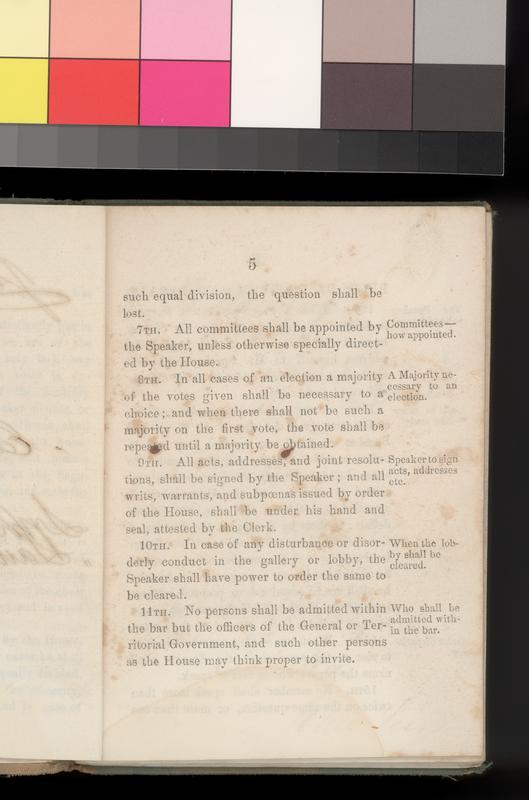 5
such equal division, the question shall be
lost.
7TH. All committees shall be appointed by
the Speaker, unless otherwise specially direct-
ed by the House.
Committees—
how appointed.
8TH. In all cases of an election a majority
of the votes given shall be necessary to a
choice; and when there shall not be such a
majority on the first vote, the vote shall be
repeated until a majority be obtained.
A Majority ne-
cessary to an
election.
9TH. All acts, addresses, and joint resolu-
tions, shall be signed by the Speaker; and all
writs, warrants, and subpœnas issued by order
of the House, shall be under his hand and
seal, attested by the Clerk.
Speaker to sign
acts, addresses
etc.
10TH. In case of any disturbance or disor-
derly conduct in the gallery or lobby, the
Speaker shall have power to order the same to
be cleared.
When the lob-
by shall be
cleared.
11TH. No persons shall be admitted within
the bar but the officers of the General or Ter-
ritorial Government, and such other persons
as the House may think proper to invite.
Who shall be
admitted with-
in the bar.